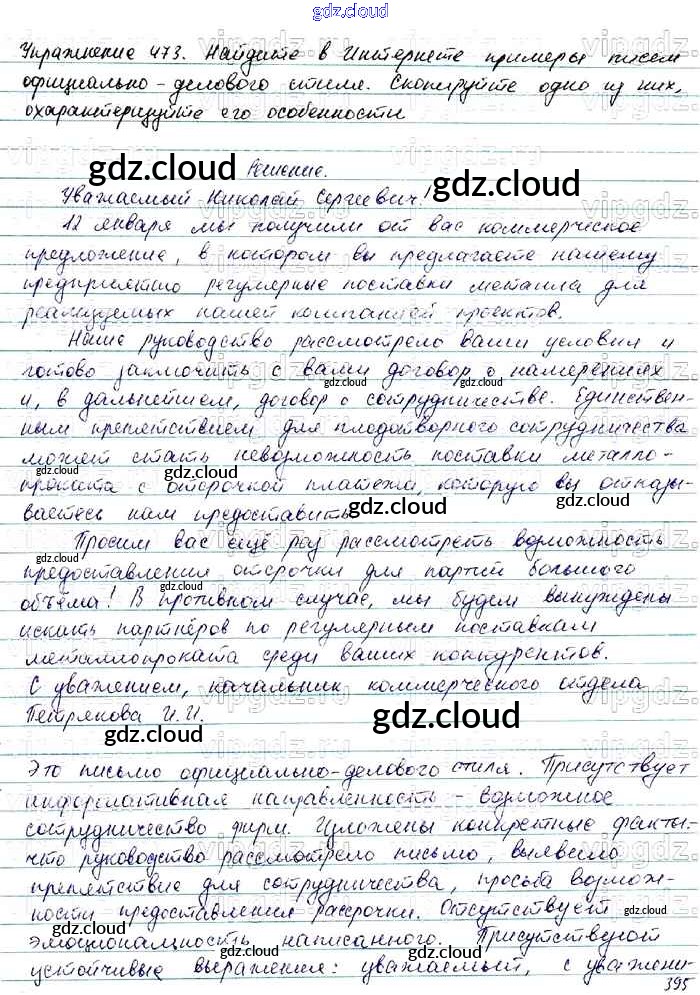 gdz.cloud
Упражнение 473. Найдите в Интернете примеры писем
официально-делового стиля. Скопируйте одно из них,
охарактеризуйте его особенности
gdz.cloud Решение. gdz.cloud
Уважаемый Николай Сергеевич!
12 января мы получили от вас коммерческое
предложение, в котором вы предлагаете нашему
предприятию регулярные поставки металла для
реализуемых нашей компанией проектов.
Наше руководство рассмотрело ваши условия и
готово заключить с вами договор о намерениях
gdz.cloud gdz.cloud
и, в дальнейшем, договор о сотрудничестве. Единствен-
ным препятствием для плодотворного сотрудничества
может стать невозможность поставки металло-
gdz.cloud gdz.cloud
проката с отсрочкой платежа, которую вы отказы-
ваетесь нам предоставить
gdz.cloud
Просим вас ещё раз рассмотреть возможность
gdz.cloud gdz.cloud
предоставления отсрочки для партий большого
gdz.cloud
объёма! В противном случае, мы будем вынуждены
искать партнёров по регулярным поставкам
металлопроката среди ваших конкурентов.
С уважением, начальник коммерческого отдела
Петрякова И.И.
gdz.cloud gdz.cloud
Это письмо официально-делового стиля. Присутствует
информативная направленность - возможное
сотрудничество фирм. Изложены конкретные факты-
что руководство рассмотрело письмо, выявлено
препятствие для сотрудничества, просьба возмож-
ности предоставления рассрочки. Отсутствует
gdz.cloud gdz.cloud
эмоциональность написанного. Присутствуют
gdz.cloud gdz.cloud
устойчивые выражения: уважаемый, с уважени-
395